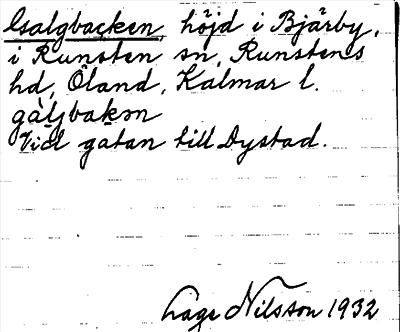 Galgbacken, höjd i Bjärby,
i Runsten sn, Runstens
hd, Öland, Kalmar l.
gàljbakən
Vid gatan till Dystad.
Åge Nilsson 1932